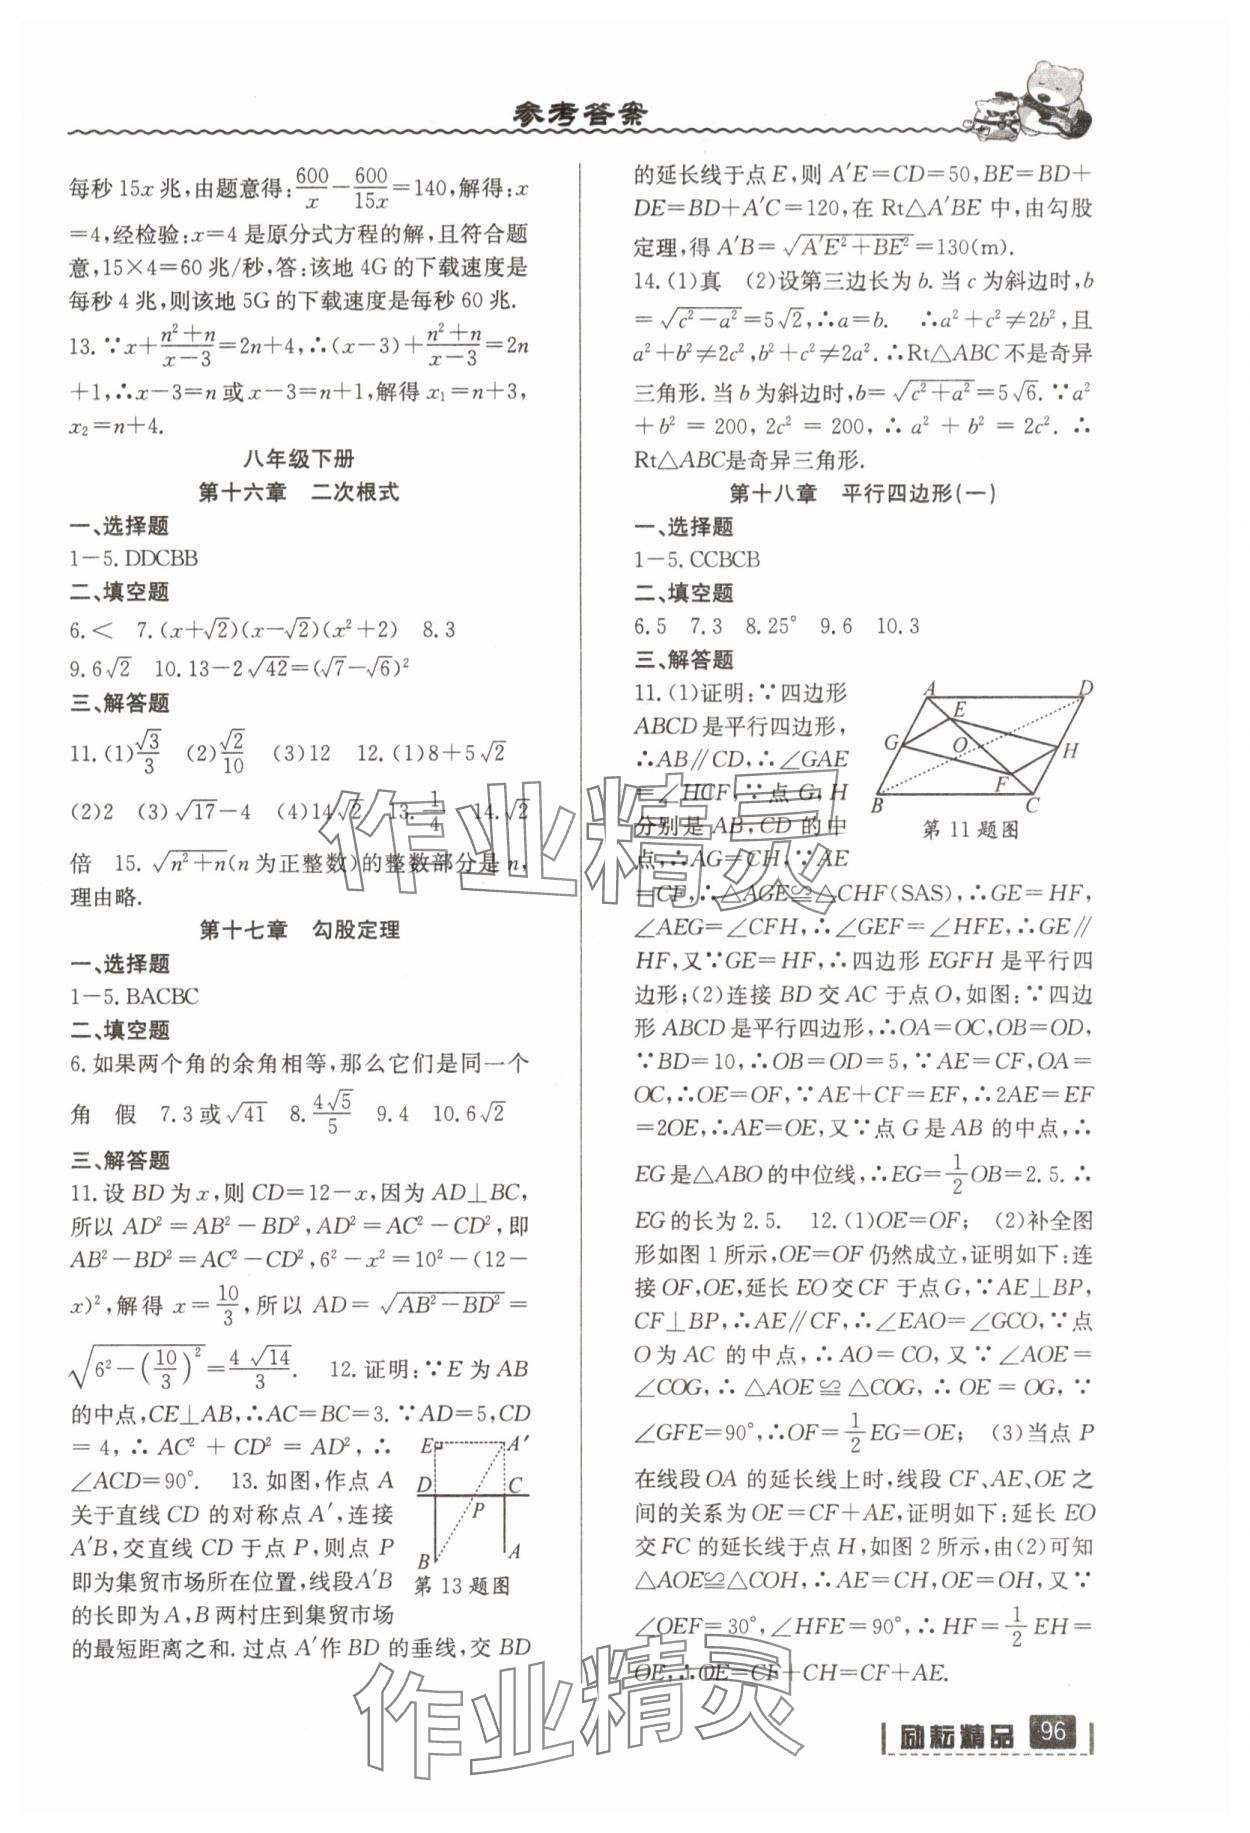 参考答案
每秒 15x 兆,由题意得:600/x－600/15x＝140,解得:x
＝4,经检验:x＝4 是原分式方程的解,且符合题
意,15×4＝60 兆/秒,答:该地 4G 的下载速度是
每秒 4 兆,则该地 5G 的下载速度是每秒 60 兆.
13.∵x＋(n²＋n)/(x－3)＝2n＋4,∴(x－3)＋(n²＋n)/(x－3)＝2n
＋1,∴x－3＝n 或 x－3＝n＋1,解得 x₁＝n＋3,
x₂＝n＋4.
八年级下册
第十六章　二次根式
一、选择题
1－5.DDCBB
二、填空题
6.＜　7.(x＋√2)(x－√2)(x²＋2)　8.3
9.6√2　10.13－2√42＝(√7－√6)²
三、解答题
11.(1)√3/3　(2)√2/10　(3)12　12.(1)8＋5√2
(2)2　(3)√17－4　(4)14√2　13.1/4　14.√2
倍　15.√(n²＋n)(n 为正整数)的整数部分是 n,
理由略.
第十七章　勾股定理
一、选择题
1－5.BACBC
二、填空题
6.如果两个角的余角相等,那么它们是同一个
角　假　7.3 或√41　8.4√5/5　9.4　10.6√2
三、解答题
11.设 BD 为 x,则 CD＝12－x,因为 AD⊥BC,
所以 AD²＝AB²－BD²,AD²＝AC²－CD²,即
AB²－BD²＝AC²－CD²,6²－x²＝10²－(12－
x)²,解得 x＝10/3,所以 AD＝√(AB²－BD²)＝
√(6²－(10/3)²)＝4√14/3.　12.证明:∵E 为 AB
的中点,CE⊥AB,∴AC＝BC＝3.∵AD＝5,CD
＝4,∴AC²＋CD²＝AD²,∴
∠ACD＝90°.　13.如图,作点 A
关于直线 CD 的对称点 A′,连接
A′B,交直线 CD 于点 P,则点 P
即为集贸市场所在位置,线段A′B
的长即为 A,B 两村庄到集贸市场
的最短距离之和.过点 A′作 BD 的垂线,交 BD
E A′
D C
P
B A
第 13 题图
的延长线于点 E,则 A′E＝CD＝50,BE＝BD＋
DE＝BD＋A′C＝120,在 Rt△A′BE 中,由勾股
定理,得 A′B＝√(A′E²＋BE²)＝130(m).
14.(1)真　(2)设第三边长为 b.当 c 为斜边时,b
＝√(c²－a²)＝5√2,∴a＝b.　∴a²＋c²≠2b²,且
a²＋b²≠2c²,b²＋c²≠2a².∴Rt△ABC 不是奇异
三角形.当 b 为斜边时,b＝√(c²＋a²)＝5√6.∵a²
＋b²＝200,2c²＝200,∴a²＋b²＝2c².∴
Rt△ABC是奇异三角形.
第十八章　平行四边形(一)
一、选择题
1－5.CCBCB
二、填空题
6.5　7.3　8.25°　9.6　10.3
三、解答题
11.(1)证明:∵四边形
ABCD 是平行四边形,
∴AB∥CD,∴∠GAE
＝∠HCF,∵点 G,H
分别是 AB,CD 的中
点,∴AG＝CH,∵AE
A D
E
G O H
F
B C
第 11 题图
＝CF,∴△AGE≌△CHF(SAS),∴GE＝HF,
∠AEG＝∠CFH,∴∠GEF＝∠HFE,∴GE∥
HF,又∵GE＝HF,∴四边形 EGFH 是平行四
边形;(2)连接 BD 交 AC 于点 O,如图:∵四边
形 ABCD 是平行四边形,∴OA＝OC,OB＝OD,
∵BD＝10,∴OB＝OD＝5,∵AE＝CF,OA＝
OC,∴OE＝OF,∵AE＋CF＝EF,∴2AE＝EF
＝2OE,∴AE＝OE,又∵点 G 是 AB 的中点,∴
EG 是△ABO 的中位线,∴EG＝1/2 OB＝2.5.∴
EG 的长为 2.5.　12.(1)OE＝OF;　(2)补全图
形如图 1 所示,OE＝OF 仍然成立,证明如下:连
接 OF,OE,延长 EO 交 CF 于点 G,∵AE⊥BP,
CF⊥BP,∴AE∥CF,∴∠EAO＝∠GCO,∵点
O 为 AC 的中点,∴AO＝CO,又∵∠AOE＝
∠COG,∴△AOE≌△COG,∴OE＝OG,∵
∠GFE＝90°,∴OF＝1/2 EG＝OE;　(3)当点 P
在线段 OA 的延长线上时,线段 CF、AE、OE 之
间的关系为 OE＝CF＋AE,证明如下:延长 EO
交 FC 的延长线于点 H,如图 2 所示,由(2)可知
△AOE≌△COH,∴AE＝CH,OE＝OH,又∵
∠OEF＝30°,∠HFE＝90°,∴HF＝1/2 EH＝
OE,∴OE＝CF＋CH＝CF＋AE.
作业精灵
作业精灵
励耘精品 96